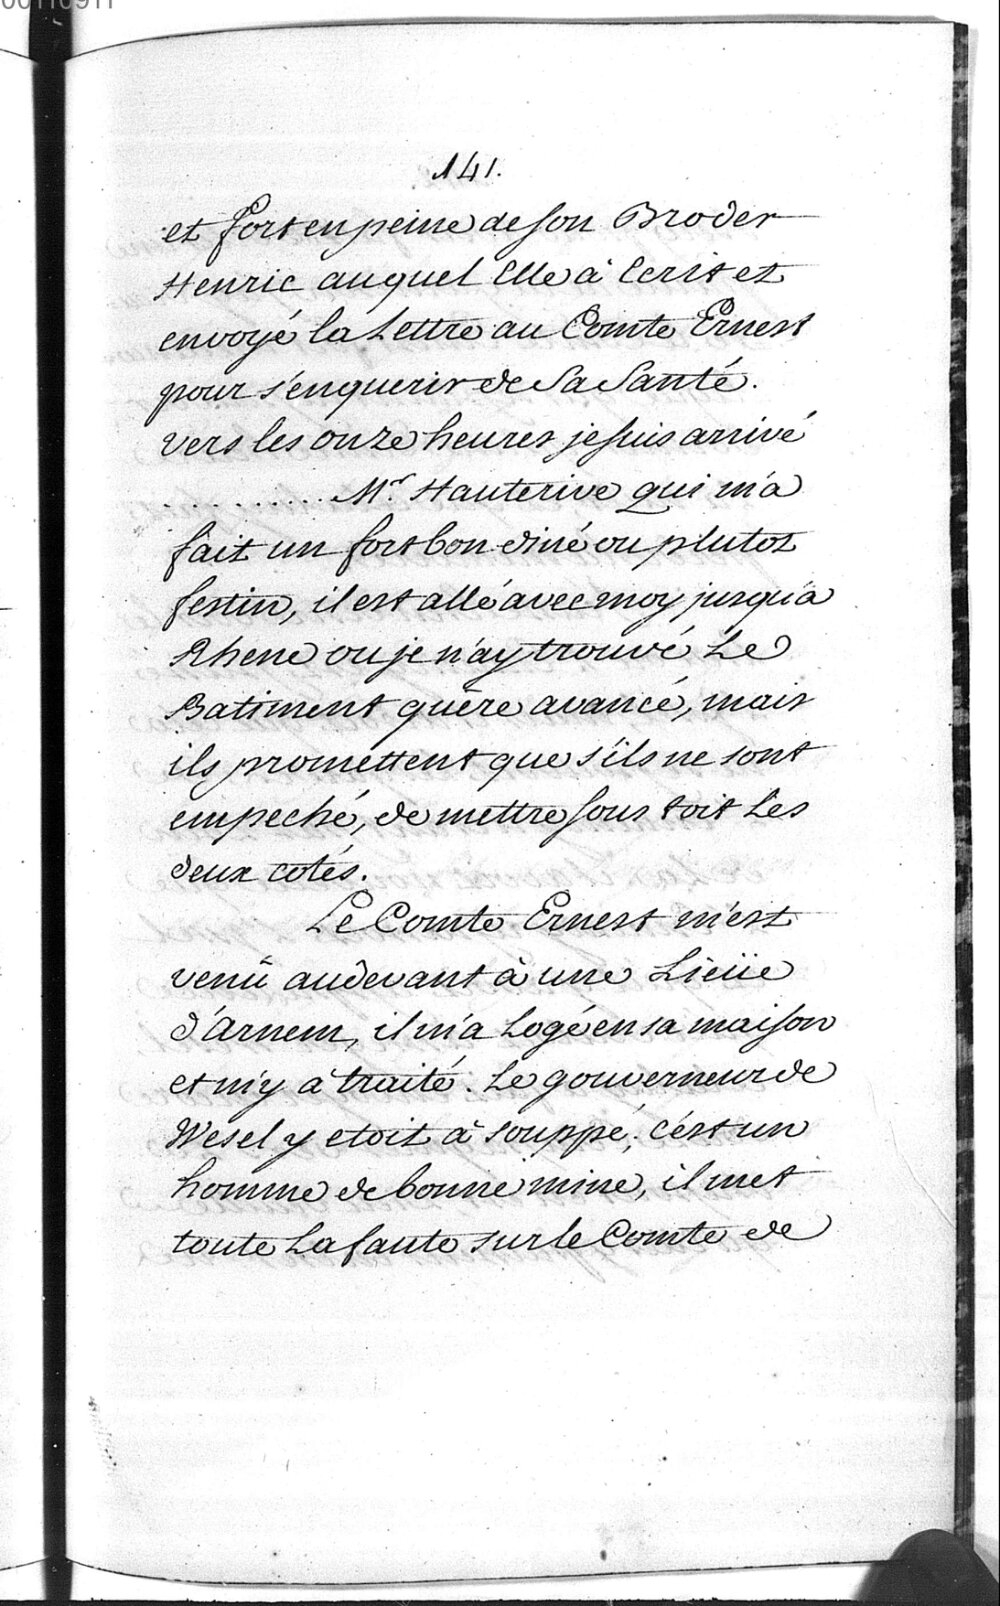 141.
et fort en peine de son Broder
Henric auquel Elle à Ecrit et
envoyé la Lettre au Comte Ernest
pour s'enquerir de Sa Santé.
vers les onze heures je suis arrivé
. . . . . . . . . Mr Hauterive qui m'a
fait un fort bon diné ou plutot
festin, il est allé avec moy jusqu'a
Rhene ou je n'ay trouvé Le
Batiment guère avancé, mais
ils promettent que s'ils ne sont
empeché, de mettre sous toit Les
deux cotés.
Le Comte Ernest m'est
venû audevant à une Lieüe
d'Arnem, il m'a Logé en sa maison
et m'y à traité. Le gouverneur de
Wesel y etoit à souppé, c'est un
homme de bonne mine, il met
toute La faute sur le Comte de